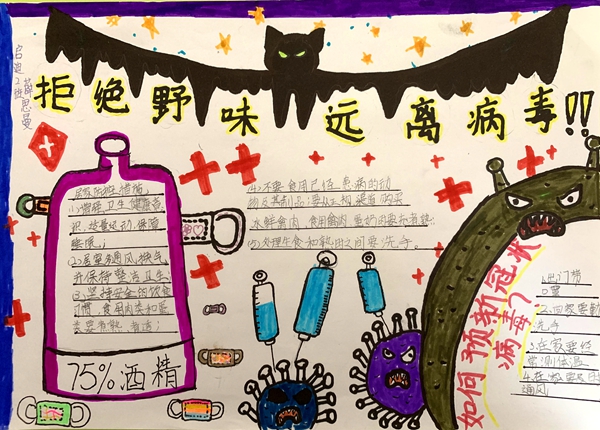 启迪2班
薛思曼
拒绝野味远离病毒!!
居家防护措施:
(1)增强卫生健康意
识,适量运动,保障
睡眠。
(2)居室多通风,换气
并保持整洁卫生
(3)坚持安全的饮食
习惯,食用肉类和蛋
类要煮熟、煮透;
75%酒精
(4)不要食用已经患病的动
物及其制品;要从正规渠道购买
冰鲜禽肉,食用禽肉、蛋奶时要充分煮熟
(5)处理生食和熟食之间要洗手。
如何预新冠状
病毒?
1.出门带
口罩
2.回家要勤
洗手
3.在家要经
常测体温
4.在家要
通风